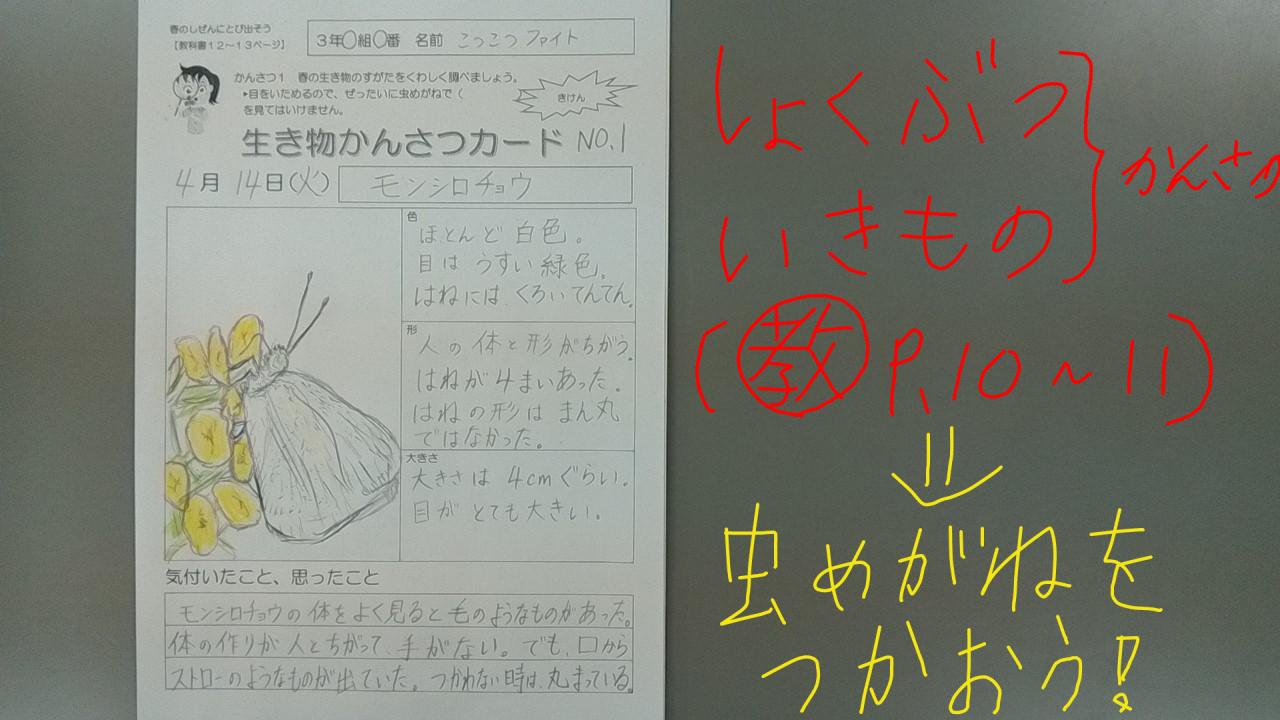 春のしぜんにとび出そう
【教科書12～13ページ】
3年〇組〇番 名前 こつこつ ファイト
かんさつ1 春の生き物のすがたをくわしく調べましょう。
▶目をいためるので、ぜったいに虫めがねで(
を見てはいけません。
きけん
生き物かんさつカード NO.1
4月 14日(火) モンシロチョウ
色
ほとんど 白色。
目は うすい 緑色。
はねには、くろいてんてん。
形
人の 体と 形がちがう。
はねが 4まいあった。
はねの形は まん丸
ではなかった。
大きさ
大きさは 4cmぐらい。
目が とても 大きい。
気付いたこと、思ったこと
モンシロチョウの体をよく見ると毛のようなものがあった。
体の作りが 人とちがって、手がない。でも、口から
ストローのようなものが出ていた。つかわない時は、丸まっている。
しょくぶつ
いきもの
かんさつ
(教 P.10～11)
虫めがねを
つかおう!